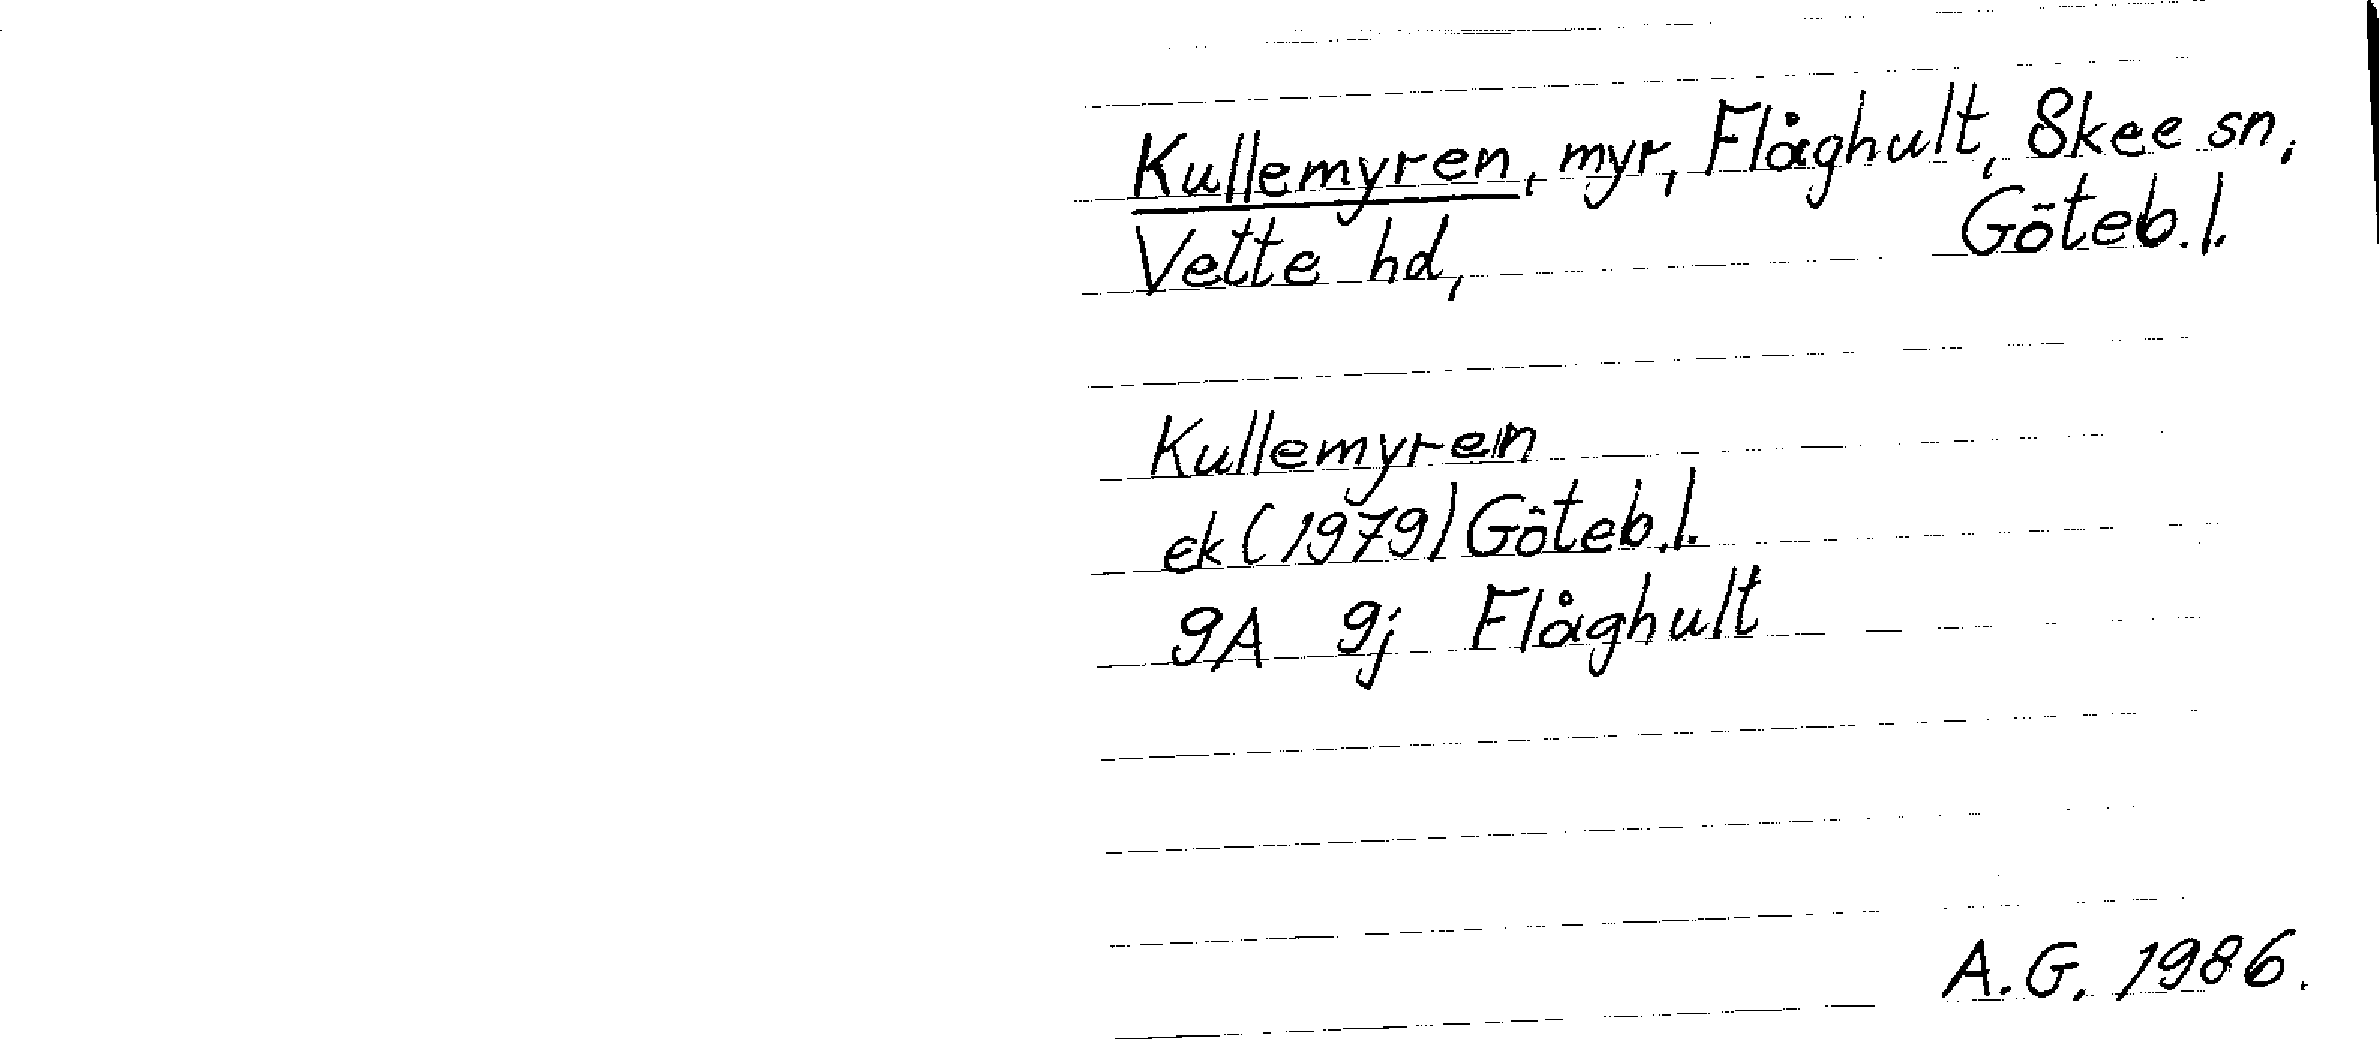 Kullemyren, myr, Flåghult, Skee sn,
Vette hd, Göteb.l.
Kullemyren
ek (1979) Göteb.l.
9A 9j Flåghult
A.G. 1986.